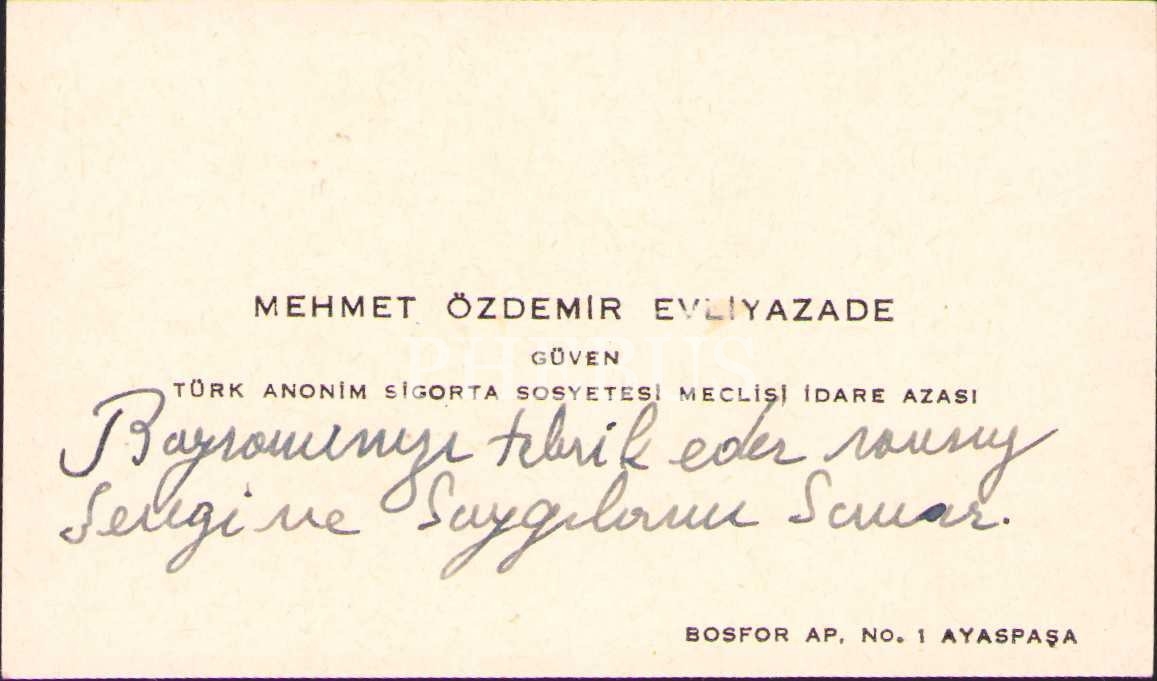 MEHMET ÖZDEMİR EVLİYAZADE
GÜVEN
TÜRK ANONİM SİGORTA SOSYETESİ MECLİSİ İDARE AZASI
Bayramınızı tebrik eder
Sevgi ve Saygılarını Sunar.
BOSFOR AP. No. 1 AYASPAŞA
PHEBUS